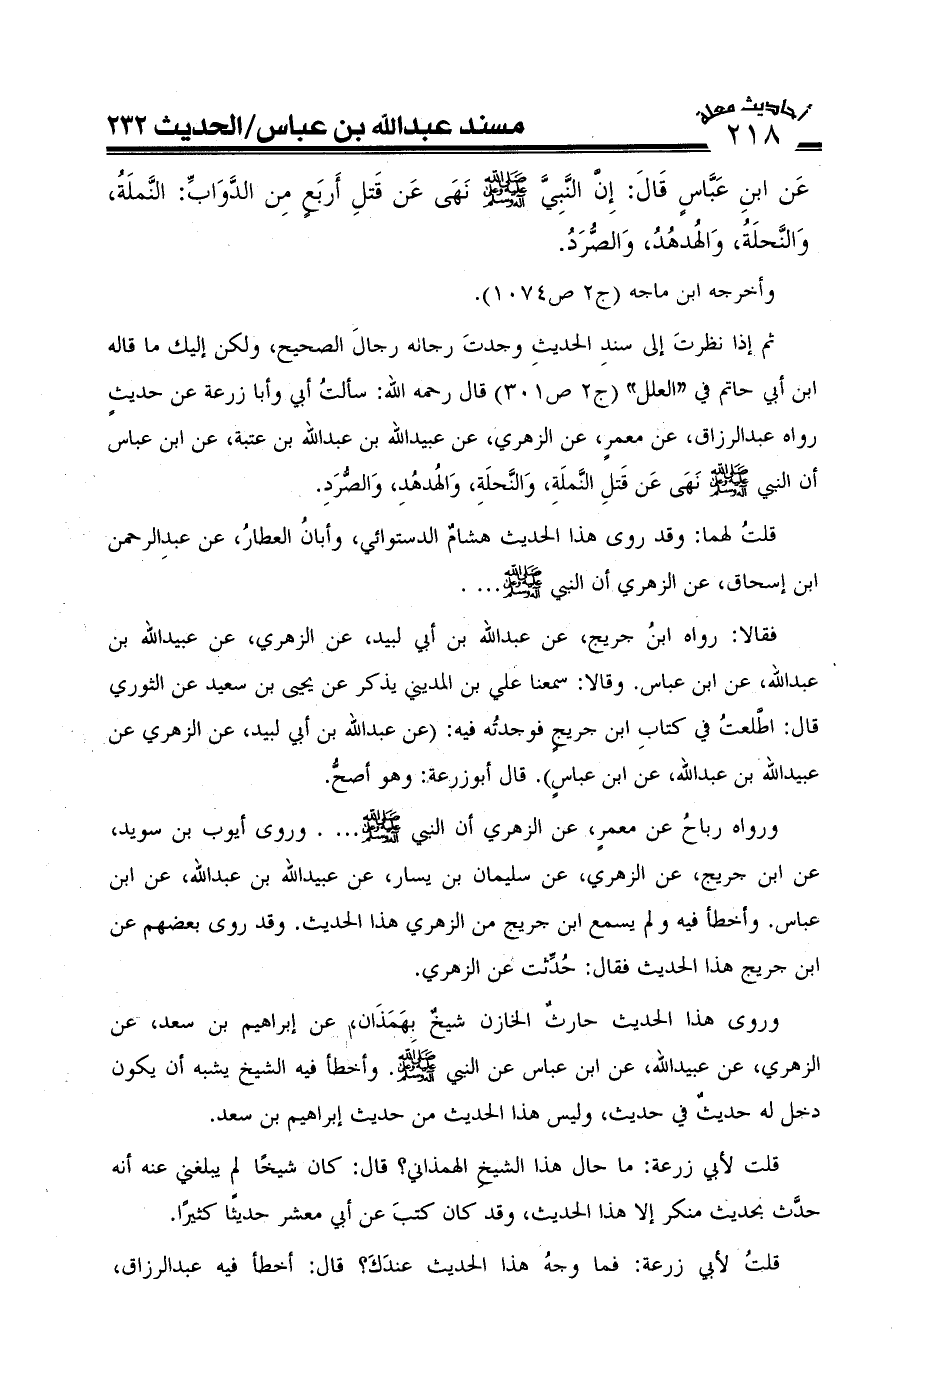 أحاديث معلة
٢١٨
مسند عبدالله بن عباس/الحديث ٢٣٢
عَن ابنِ عَبَّاسٍ قَالَ: إِنَّ النَّبِيَّ ﷺ نَهَى عَن قَتلِ أَربَعٍ مِن الدَّوَابِّ: النَّملَةُ،
وَالنَّحلَةُ، وَالهُدهُدُ، وَالصُّرَدُ.
وأخرجه ابن ماجه (ج٢ ص١٠٧٤).
ثم إذا نظرتَ إلى سندِ الحديثِ وجدتَ رجاله رجالَ الصحيح، ولكن إليك ما قاله
ابن أبي حاتم في «العلل» (ج٢ ص٣٠١) قال رحمه الله: سألتُ أبي وأبا زرعة عن حديثٍ
رواه عبدالرزاق، عن معمرٍ، عن الزهري، عن عبيدالله بن عبدالله بن عتبة، عن ابن عباس
أن النبي ﷺ نَهَى عَن قَتلِ النَّملَةِ، وَالنَّحلَةِ، وَالهُدهُدِ، وَالصُّرَدِ.
قلتُ لهما: وقد روى هذا الحديث هشامٌ الدستوائي، وأبانُ العطارُ، عن عبدِالرحمن
ابن إسحاق، عن الزهري أن النبي ﷺ... .
فقالا: رواه ابنُ جريج، عن عبدالله بن أبي لبيد، عن الزهري، عن عبيدالله بن
عبدالله، عن ابن عباس. وقالا: سمعنا علي بن المديني يذكر عن يحيى بن سعيد عن الثوري
قال: اطَّلعتُ في كتابِ ابن جريجٍ فوجدتُه فيه: (عن عبدالله بن أبي لبيد، عن الزهري عن
عبيدالله بن عبدالله، عن ابن عباسٍ). قال أبوزرعة: وهو أصحُّ.
ورواه رباحُ عن معمرٍ، عن الزهري أن النبي ﷺ... . وروى أيوب بن سويد،
عن ابن جريج، عن الزهري، عن سليمان بن يسار، عن عبيدالله بن عبدالله، عن ابن
عباس. وأخطأ فيه و لم يسمع ابن جريج من الزهري هذا الحديث. وقد روى بعضهم عن
ابن جريج هذا الحديث فقال: حُدِّثت عن الزهري.
وروى هذا الحديث حارثٌ الخازن شيخٌ بِهَمَذَان، عن إبراهيم بن سعد، عن
الزهري، عن عبيدالله، عن ابن عباس عن النبي ﷺ. وأخطأ فيه الشيخ يشبه أن يكون
دخل له حديثٌ في حديث، وليس هذا الحديث من حديث إبراهيم بن سعد.
قلت لأبي زرعة: ما حال هذا الشيخِ الهمذاني؟ قال: كان شيخًا لم يبلغني عنه أنه
حدَّث بحديث منكرٍ إلا هذا الحديث، وقد كان كتبَ عن أبي معشر حديثًا كثيرًا.
قلتُ لأبي زرعة: فما وجهُ هذا الحديث عندَكَ؟ قال: أخطأ فيه عبدالرزاق،